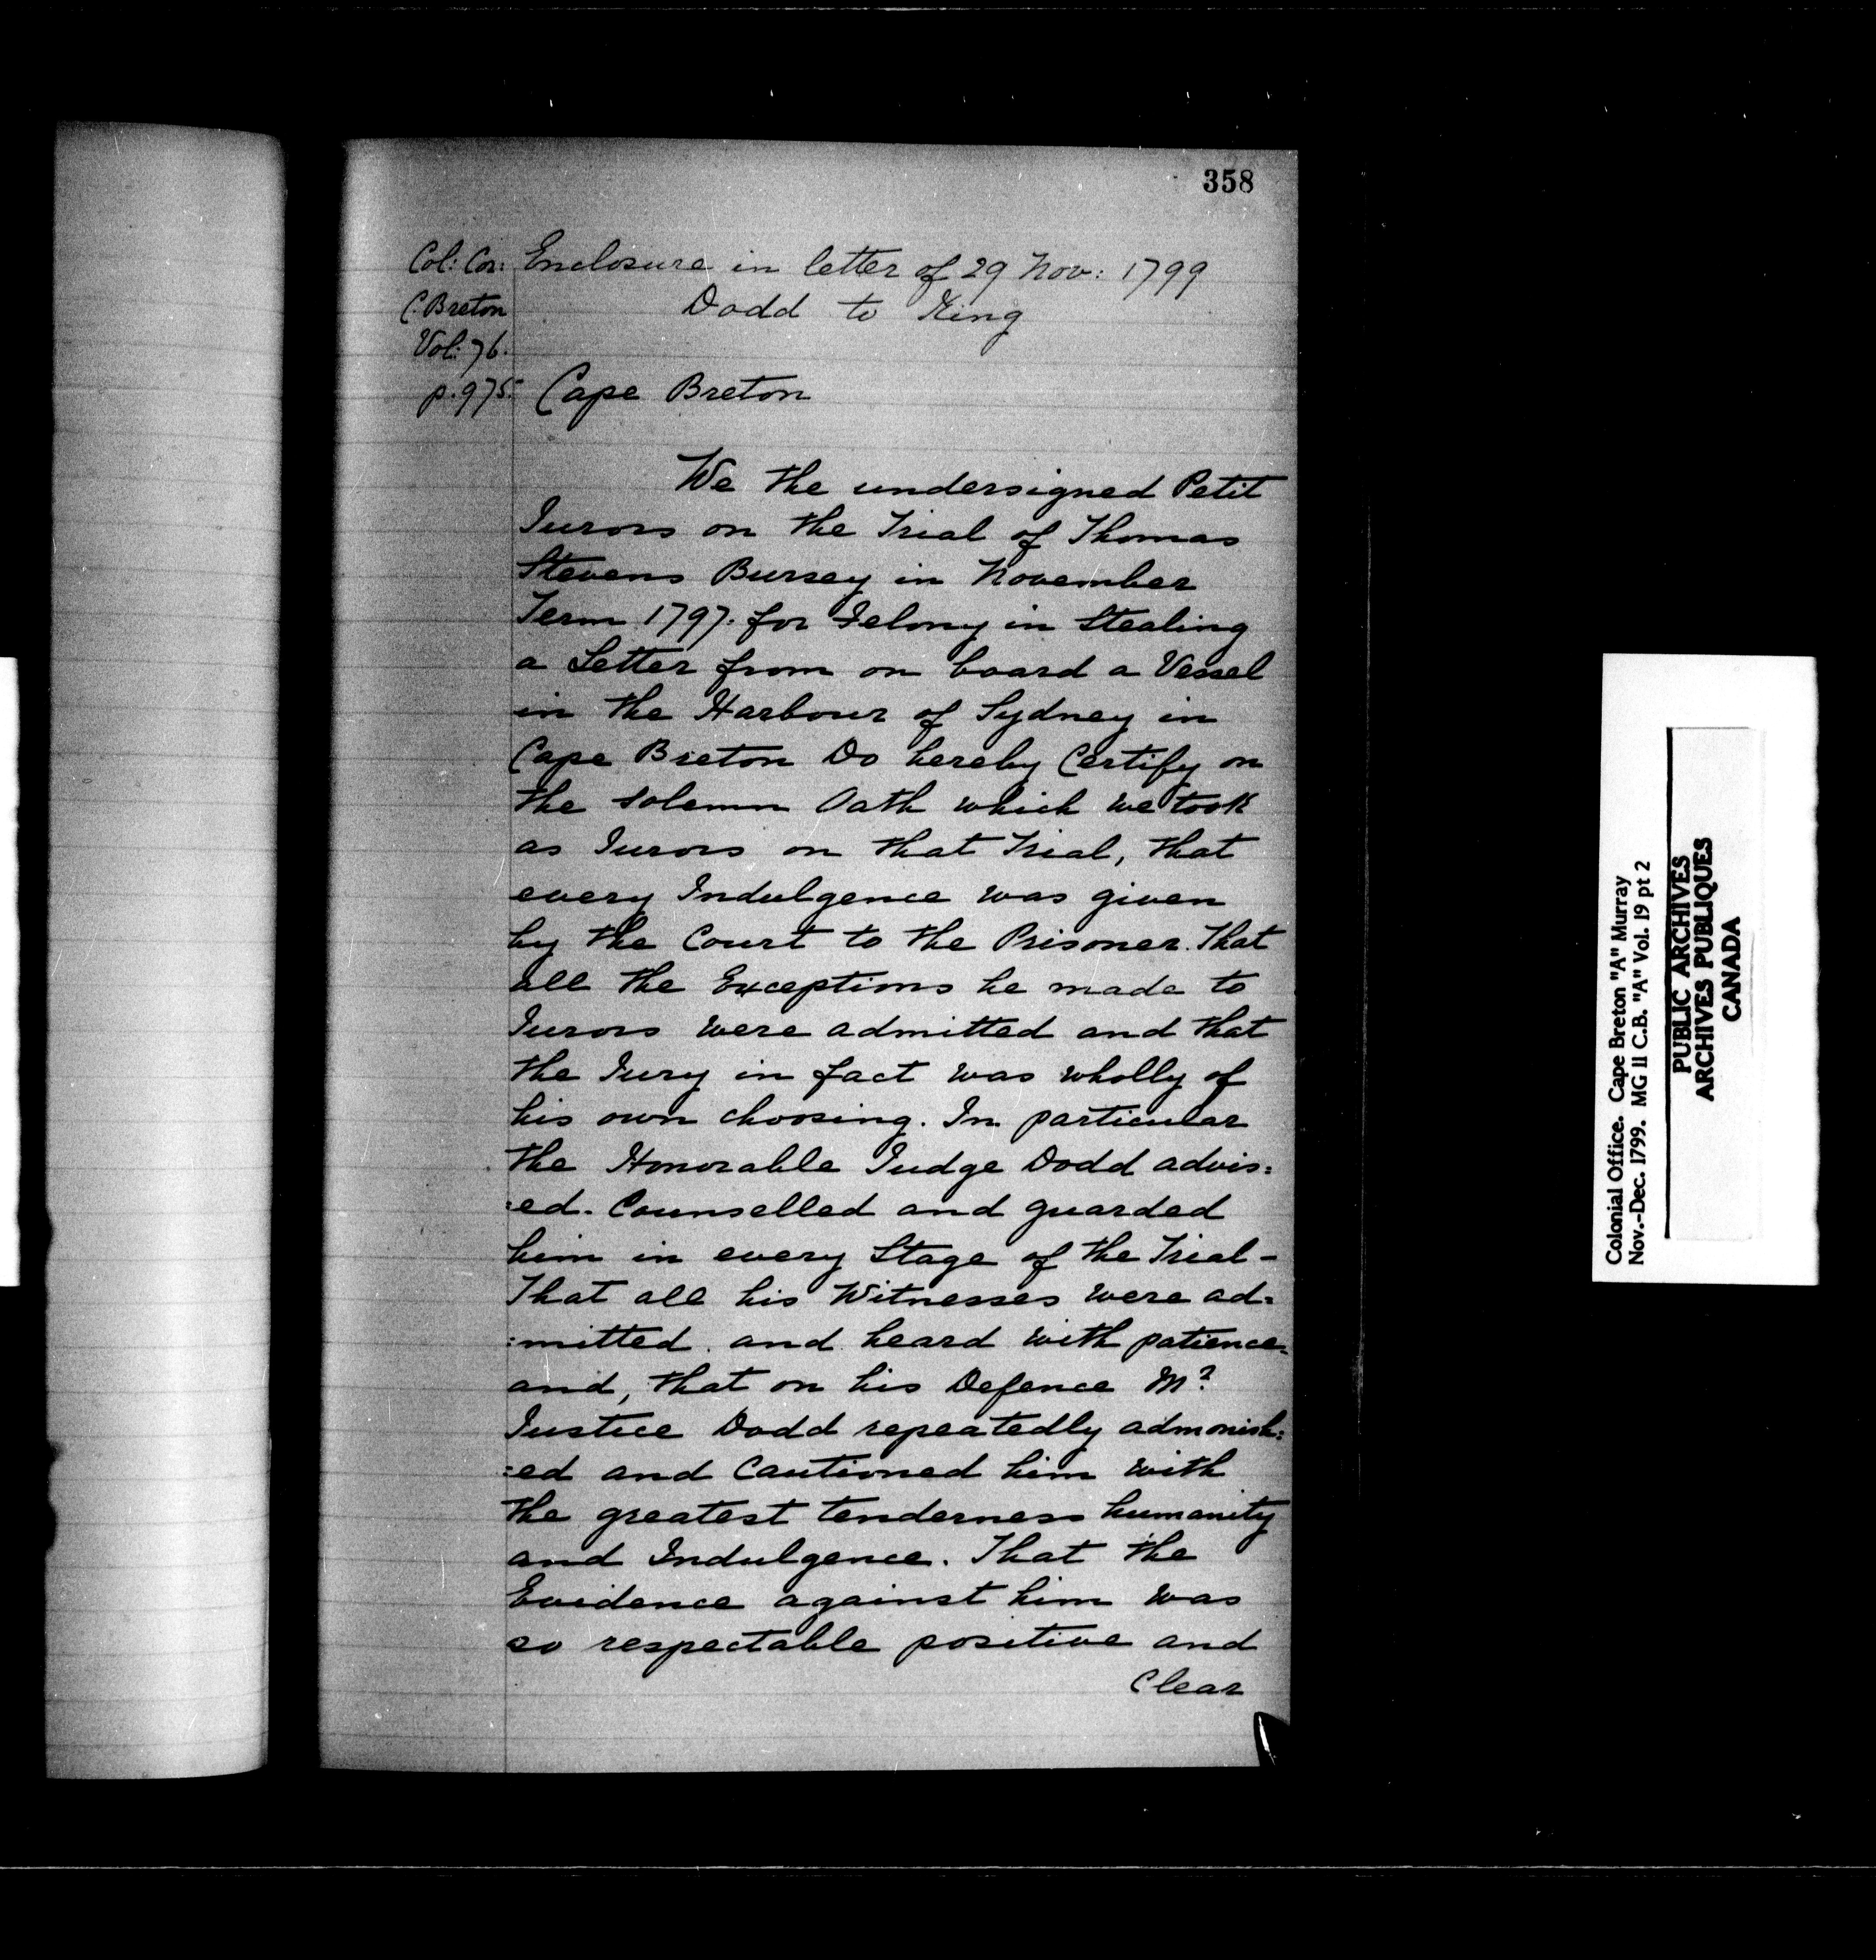 358
Col: Cor: Enclosure in letter of 29 Nov: 1799
C. Breton Dodd to King
Vol: 76.
p. 975. Cape Breton
We the undersigned Petit
Jurors on the Trial of Thomas
Stevens Bursey in November
Term 1797. for Felony in Stealing
a Letter from on board a Vessel
in the Harbour of Sydney in
Cape Breton Do hereby Certify on
the solemn Oath which we took
as Jurors on that Trial, that
every Indulgence was given
by the Court to the Prisoner. That
all the Exceptions he made to
Jurors were admitted and that
the Jury in fact was wholly of
his own choosing. In particular
the Honorable Judge Dodd advis:
:ed. Counselled and guarded
him in every Stage of the Trial -
That all his Witnesses were ad:
:mitted. and heard with patience.
and, that on his Defence Mr.
Justice Dodd repeatedly admonish:
:ed and Cautioned him with
the greatest tenderness humanity
and Indulgence. That the
Evidence against him was
so respectable positive and
Clear
Colonial Office. Cape Breton "A" Murray
Nov.-Dec. 1799. MG 11 C.B. "A" Vol. 19 pt 2
PUBLIC ARCHIVES
ARCHIVES PUBLIQUES
CANADA